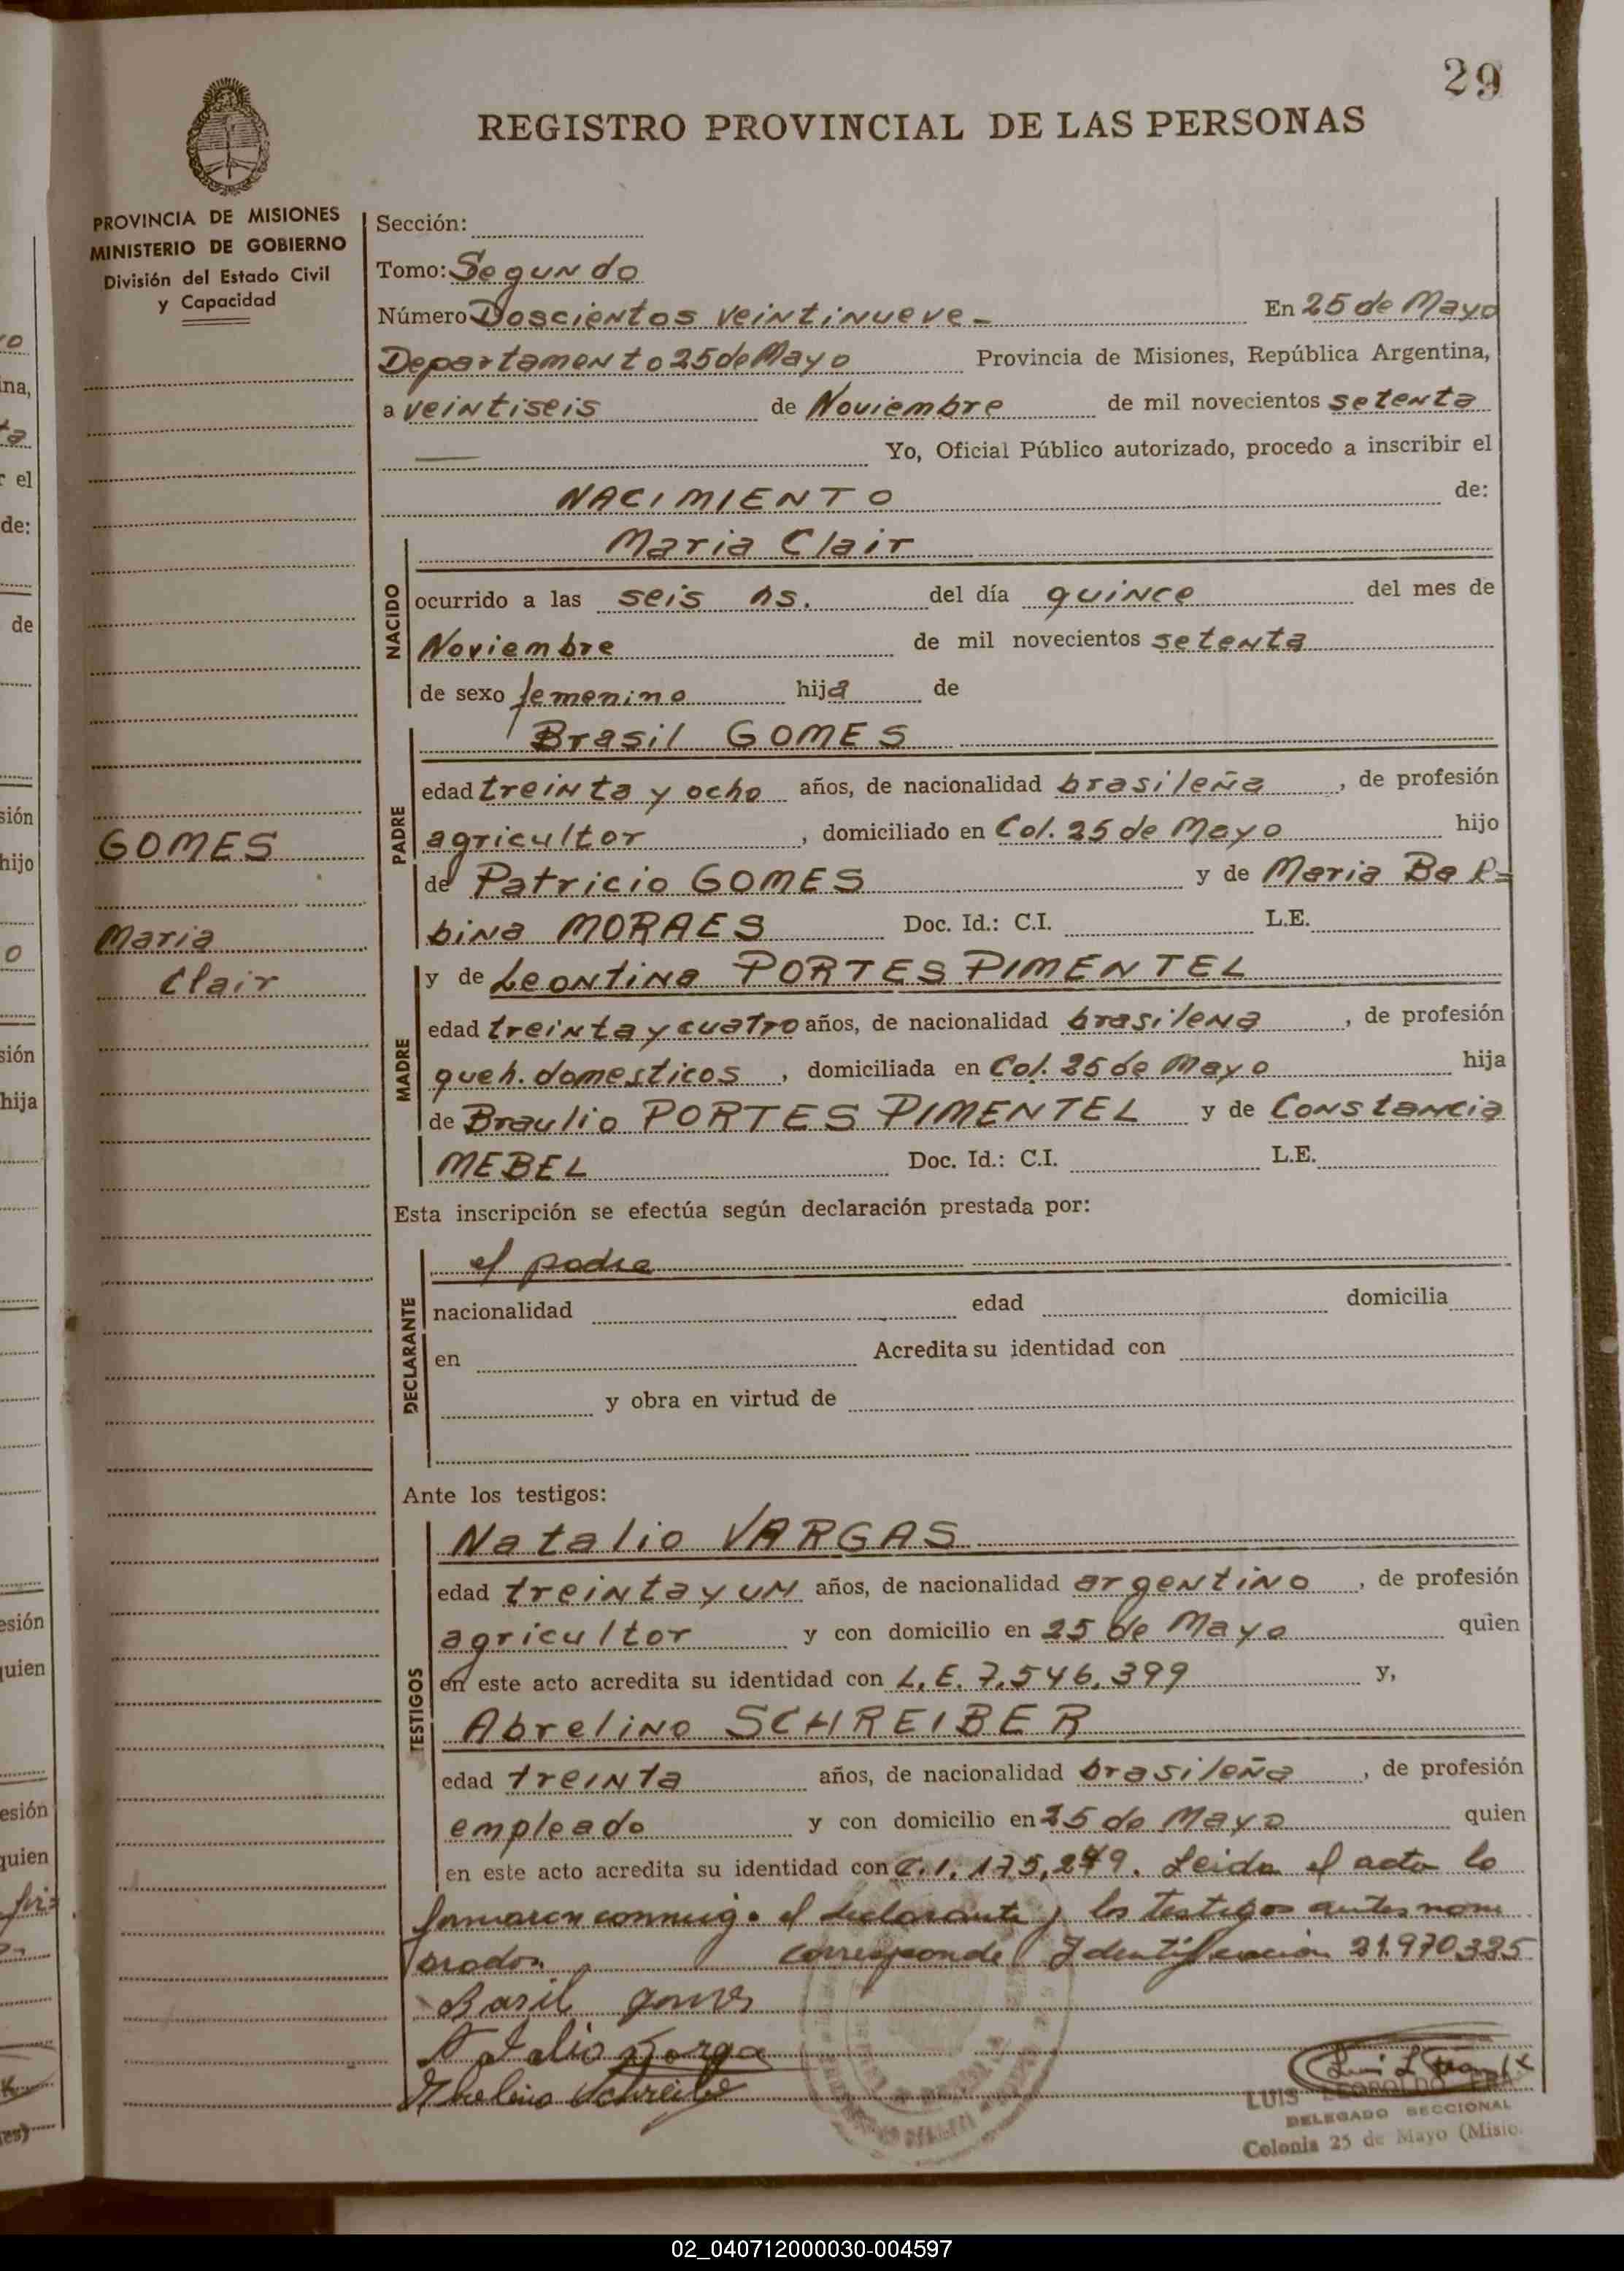 29
REGISTRO PROVINCIAL DE LAS PERSONAS
PROVINCIA DE MISIONES
MINISTERIO DE GOBIERNO
División del Estado Civil
y Capacidad
Sección:
Tomo: Segundo
Número Doscientos veintinueve - En 25 de Mayo
Departamento 25 de Mayo Provincia de Misiones, República Argentina,
a veintiseis de Noviembre de mil novecientos setenta
Yo, Oficial Público autorizado, procedo a inscribir el
NACIMIENTO de:
NACIDO
Maria Clair
ocurrido a las seis hs. del día quince del mes de
Noviembre de mil novecientos setenta
de sexo femenino hija de
PADRE
Brasil GOMES
edad treinta y ocho años, de nacionalidad brasileña, de profesión
agricultor, domiciliado en Col. 25 de Mayo hijo
de Patricio GOMES y de Maria Bal=
bina MORAES Doc. Id.: C.I. L.E.
GOMES
Maria
Clair
MADRE
y de Leontina PORTES PIMENTEL
edad treinta y cuatro años, de nacionalidad brasilena, de profesión
queh. domesticos, domiciliada en Col. 25 de Mayo hija
de Braulio PORTES PIMENTEL y de Constancia
MEBEL Doc. Id.: C.I. L.E.
Esta inscripción se efectúa según declaración prestada por:
DECLARANTE
el padre
nacionalidad edad domicilia
en Acredita su identidad con
y obra en virtud de
Ante los testigos:
TESTIGOS
Natalio VARGAS
edad treinta y un años, de nacionalidad argentino, de profesión
agricultor y con domicilio en 25 de Mayo quien
en este acto acredita su identidad con L.E. 7.546.399 y,
Abrelino SCHREIBER
edad treinta años, de nacionalidad brasileña, de profesión
empleado y con domicilio en 25 de Mayo quien
en este acto acredita su identidad con C.I. 175,249. Leida el acta lo
firmaron conmigo el declarante y los testigos antes nom
brados. corresponde Identificación 21.970.385
Basil gomes
Abelino Schreiber
LUIS LEOPOLDO
DELEGADO SECCIONAL
Colonia 25 de Mayo (Misio.
02_040712000030-004597